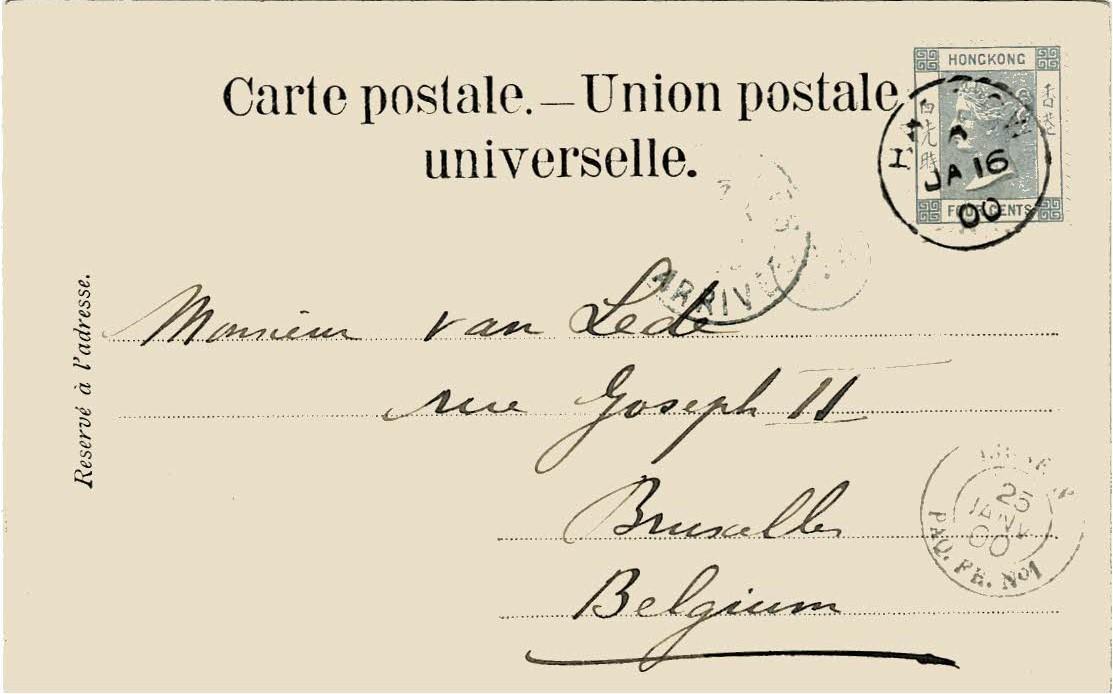 HONGKONG
香港
四先時
FOUR CENTS
Carte postale.—Union postale
universelle.
JA 16
00
ARRIVÉE
Reservé à l'adresse.
Monsieur van Lede
rue Joseph II
Bruxelles
Belgium
25
JANV
00
PAQ. FR. No1